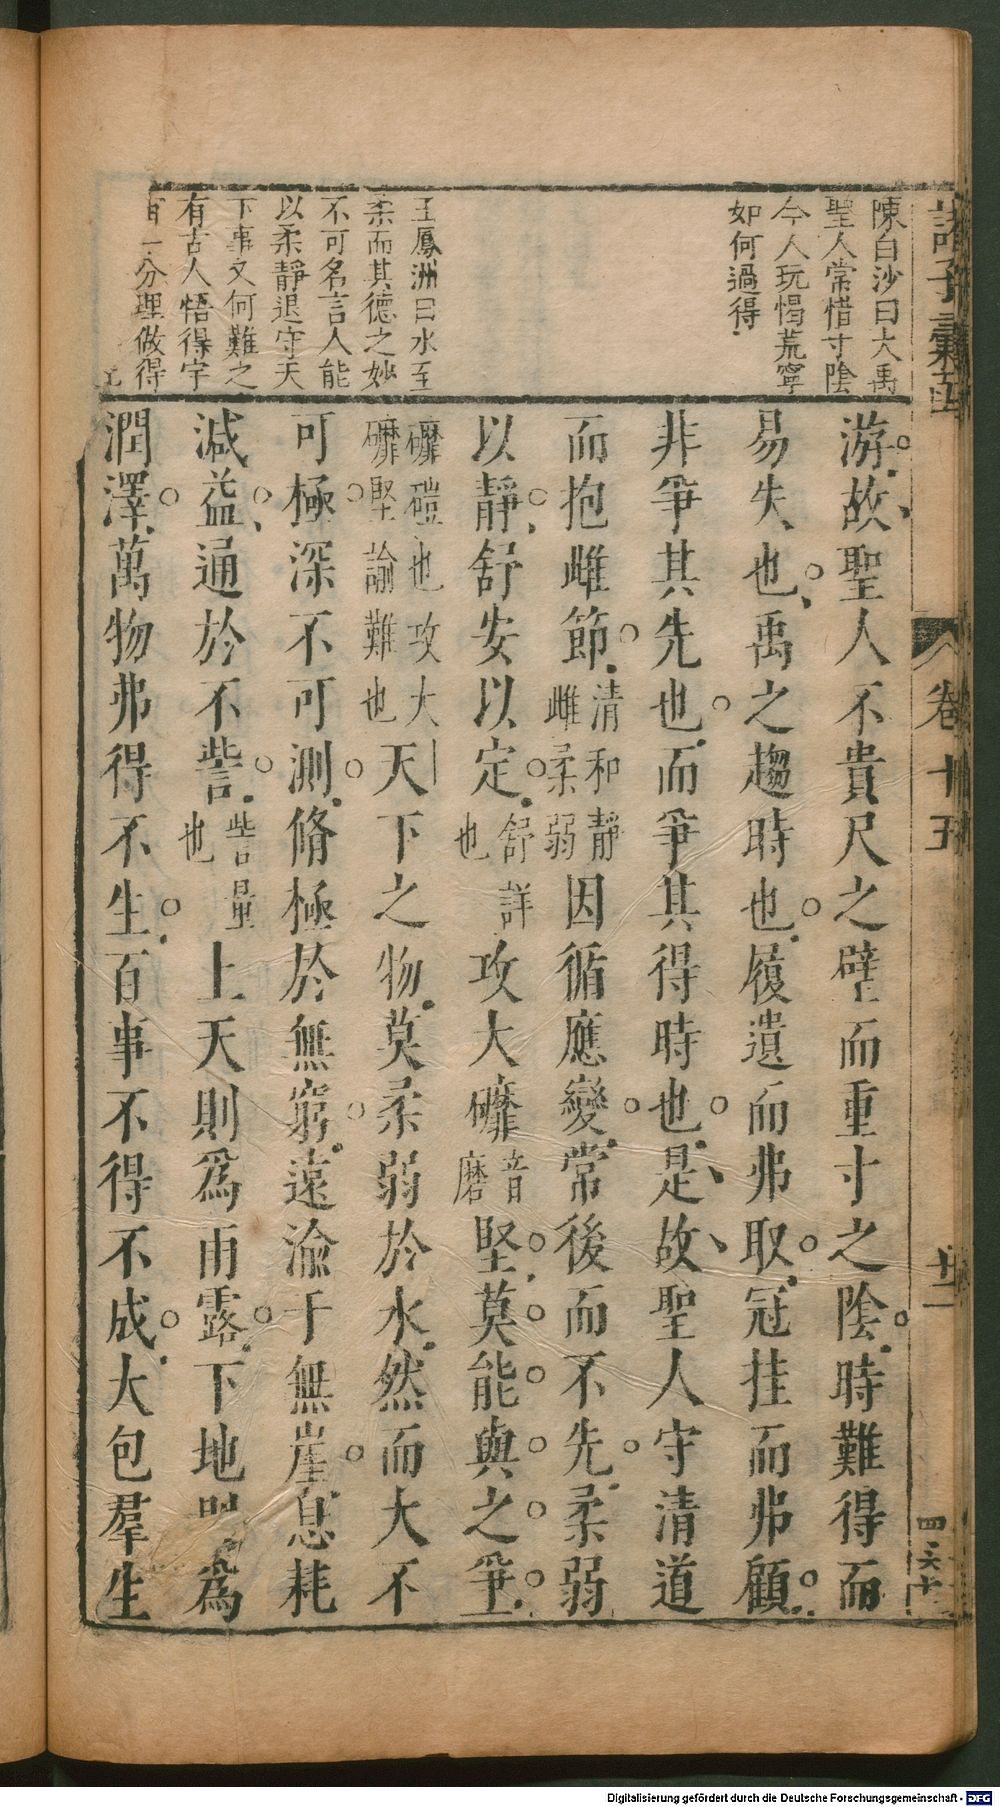 諸子彙函
卷十五
廿一
四六十
陳白沙曰大禹
聖人常惜寸陰
今人玩愒荒寧
如何過得
王鳳洲曰水至
柔而其德之妙
不可名言人能
以柔靜退守天
下事又何難之
有古人悟得字
一分理做得
游故聖人不貴尺之璧而重寸之陰時難得而
易失也禹之趨時也履遺而弗取冠挂而弗顧
非爭其先也而爭其得時也是故聖人守清道
而抱雌節清和靜雌柔弱因循應變常後而不先柔弱
以靜舒安以定舒詳也攻大䃺音磨堅莫能與之爭
䃺磑也攻大䃺堅諭難也天下之物莫柔弱於水然而大不
可極深不可測脩極於無窮遠淪于無崖息耗
減益通於不訾訾量也上天則爲雨露下地爲
潤澤萬物弗得不生百事不得不成大包羣生
Digitalisierung gefördert durch die Deutsche Forschungsgemeinschaft - DFG